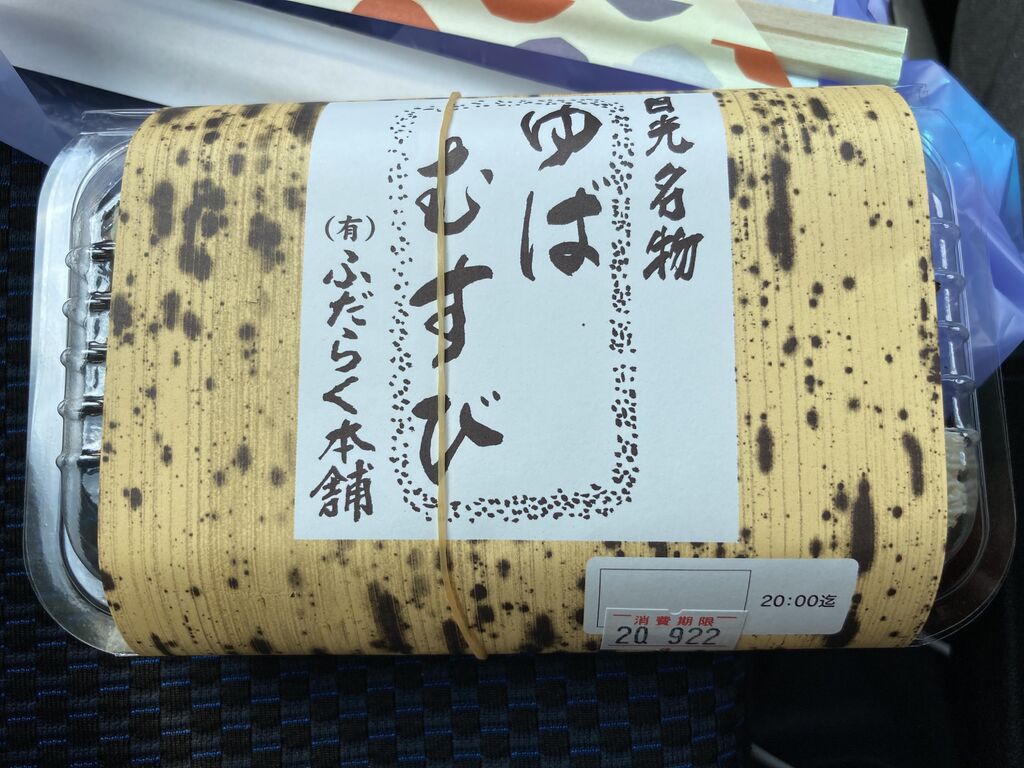 日光名物
ゆば
むすび
(有)ふだらく本舗
20:00迄
消費期限
20 922